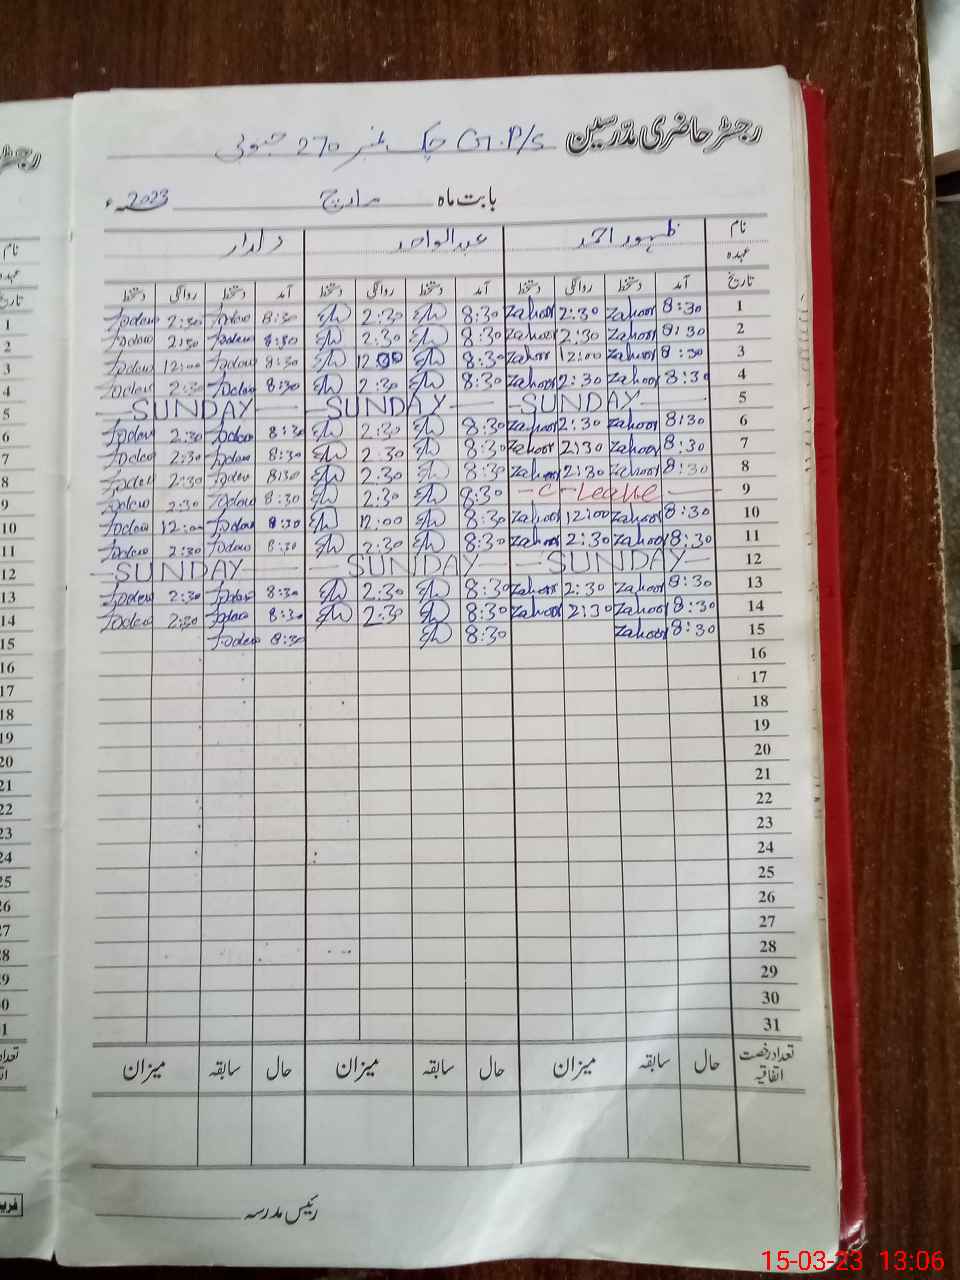 رجسٹر حاضری مدرسین G.P/S چک نمبر 270 جنوبی
بابت ماہ مارچ 2023ء
نام ظہور احمد عبدالواحد دلدار
عہدہ
تاریخ آمد دستخط روانگی دستخط آمد دستخط روانگی دستخط آمد دستخط روانگی دستخط
1 8:30 Zahoor 2:30 Zahoor 8:30 2:30 8:30 2:30
2 8:30 Zahoor 2:30 Zahoor 8:30 2:30 8:30 2:30
3 8:30 Zahoor 12:00 Zahoor 8:30 12:00 8:30 12:00
4 8:30 Zahoor 2:30 Zahoor 8:30 2:30 8:30 2:30
5 SUNDAY SUNDAY SUNDAY
6 8:30 Zahoor 2:30 Zahoor 8:30 2:30 8:30 2:30
7 8:30 Zahoor 2:30 Zahoor 8:30 2:30 8:30 2:30
8 8:30 Zahoor 2:30 Zahoor 8:30 2:30 8:30 2:30
9 C-Leave 8:30 2:30 8:30 2:30
10 8:30 Zahoor 12:00 Zahoor 8:30 12:00 8:30 12:00
11 8:30 Zahoor 2:30 Zahoor 8:30 2:30 8:30 2:30
12 SUNDAY SUNDAY SUNDAY
13 8:30 Zahoor 2:30 Zahoor 8:30 2:30 8:30 2:30
14 8:30 Zahoor 2:30 Zahoor 8:30 2:30 8:30 2:30
15 8:30 Zahoor 8:30 8:30
16
17
18
19
20
21
22
23
24
25
26
27
28
29
30
31
تعداد رخصت اتفاقیہ حال سابقہ میزان حال سابقہ میزان حال سابقہ میزان
رئیس مدرسہ
15-03-23 13:06